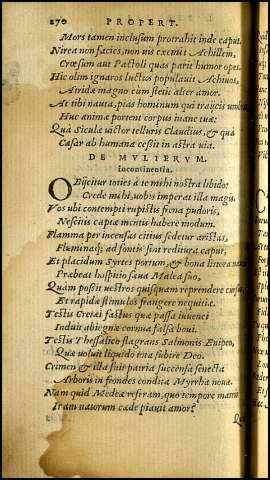 270 PROPERT.
Mors tamen inclusum protrahit inde caput.
Nirea non facies, non uis exemit Achillem,
Crœsum aut Pactoli quas parit humor opes.
Hic olim ignaros luctus populauit Achiuos,
Atridæ magno cùm stetit alter amor.
At tibi nauta, pias hominum qui traijcis umbras
Huc animæ portent corpus inane tuæ:
Quà Siculæ victor telluris Claudius, & quà
Cæsar ab humana cessit in astra uia.
DE MVLIERVM
incontinentia.
OBijcitur toties à te mihi nostra libido:
Crede mihi, uobis imperat illa magis.
Vos ubi contempti rupistis frena pudoris,
Nescitis captæ mentis habere modum.
Flamma per incensas citius sedetur aristas,
Fluminaq; ad fontis sint reditura caput,
Et placidum Syrtes portum, & bona litora nautis
Præbeat hospitio sæua Malea suo,
Quàm possit uestros quisquam reprendere cursus,
Et rapidæ stimulos frangere nequitiæ.
Testis Cretæi fastus quæ passa iuuenci
Induit abiegnæ cornua falsa boui.
Testis Thessalico flagrans Salmonis Enipeo,
Quæ uoluit liquido tota subire Deo.
Crimen & illa fuit patria succensa senecta
Arboris in frondes condita Myrrha nouæ.
Nam quid Medeæ referam, quo tempore matris
Iram natorum cæde piauit amor?